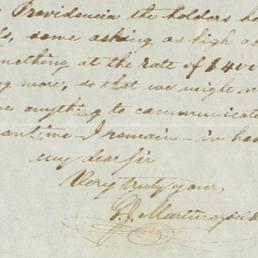 Providencia the holders ha
some asking as high a
something at the rate of $400
ng more, so that we might n
e anything to communicate
antime I remain - in ha
my dear sir
Very truly your,